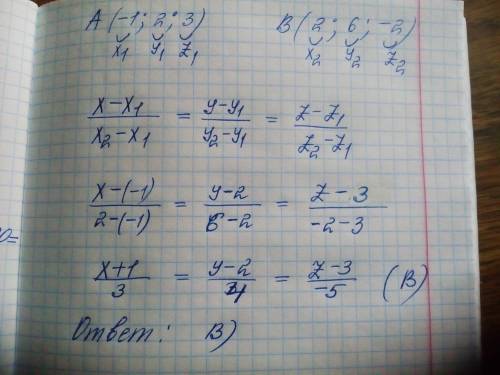 A (-1; 2; 3) B (2; 6; -2)
x₁ y₁ z₁ x₂ y₂ z₂
(x-x₁)/(x₂-x₁) = (y-y₁)/(y₂-y₁) = (z-z₁)/(z₂-z₁)
(x-(-1))/(2-(-1)) = (y-2)/(6-2) = (z-3)/(-2-3)
(x+1)/3 = (y-2)/4 = (z-3)/(-5) (В)
Ответ: В)